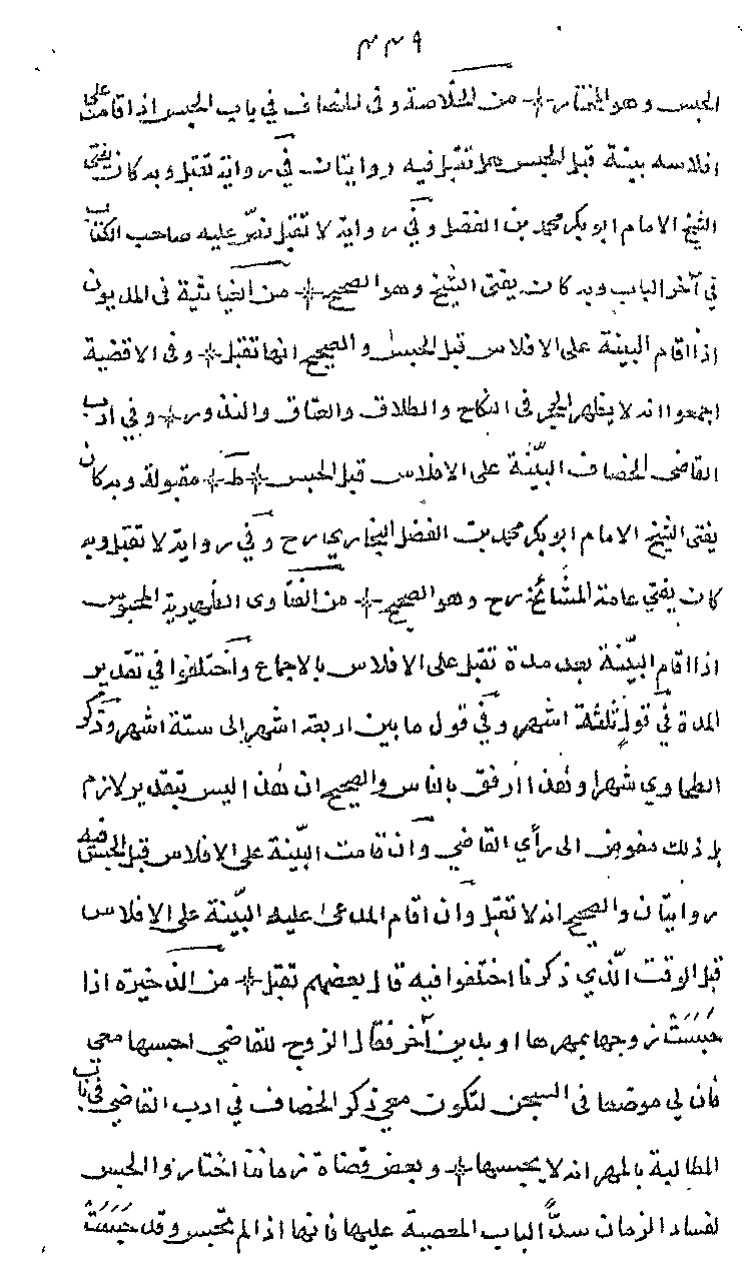 ٣٣٩
الحبس وهو المختار ⁜ من الخلاصة وفى الخصاف في باب الحبس اذا اقامت على
افلاسه بينة قبل الحبس هل تقبل فيه روايتان في رواية تقبل وبه كان يفتى
الشيخ الامام ابو بكر محمد بن الفضل وفي رواية لا تقبل نصّ عليه صاحب الكتاب
في آخر الباب وبه كان يفتى الشيخ وهو الصحيح ⁜ من الغياثية فى المديون
اذا اقام البينة على الافلاس قبل الحبس والصحيح انها تقبل ⁜ وفى الاقضية
اجمعوا انه لا يظهر الحجر فى النكاح والطلاق والعتاق والنذور ⁜ وفي ادب
القاضى الخصاف البيّنة على الافلاس قبل الحبس ⁜ ط ⁜ مقبولة وبه كان
يفتى الشيخ الامام ابو بكر محمد بن الفضل البخاري رح وفي رواية لا تقبل وبه
كان يفتي عامة المشائخ رح وهو الصحيح ⁜ من الفتاوى الظهيرية المحبوس
اذا اقام البيّنة بعد مدة تقبل على الافلاس بالاجماع واختلفوا في تقدير
المدة في قول ثلثة اشهر وفي قول ما بين اربعة اشهر الى ستة اشهر وذكر
الطحاوي شهرا وهذا ارفق بالناس والصحيح ان هذا ليس بتقدير لازم
بل ذلك مفوض الى رأي القاضي وان قامت البيّنة على الافلاس قبل الحبس فيه
روايتان والصحيح انه لا تقبل وان اقام المدعى عليه البيّنة على الافلاس
قبل الوقت الّذي ذكرنا اختلفوا فيه قال بعضهم تقبل ⁜ من الذخيرة اذا
حَبَسَتْ زوجها بمهرها او بدين آخر فقال الزوج للقاضي احبسها معي
فان لى موضعا فى السجن لتكون معي ذكر الخصاف في ادب القاضي في باب
المطالبة بالمهر انه لا يحبسها ⁜ وبعض قضاة زماننا اختاروا الحبس
لفساد الزمان سدًّا لباب المعصية عليها فانها اذا لم تحبس وقد حَبَسَتْ